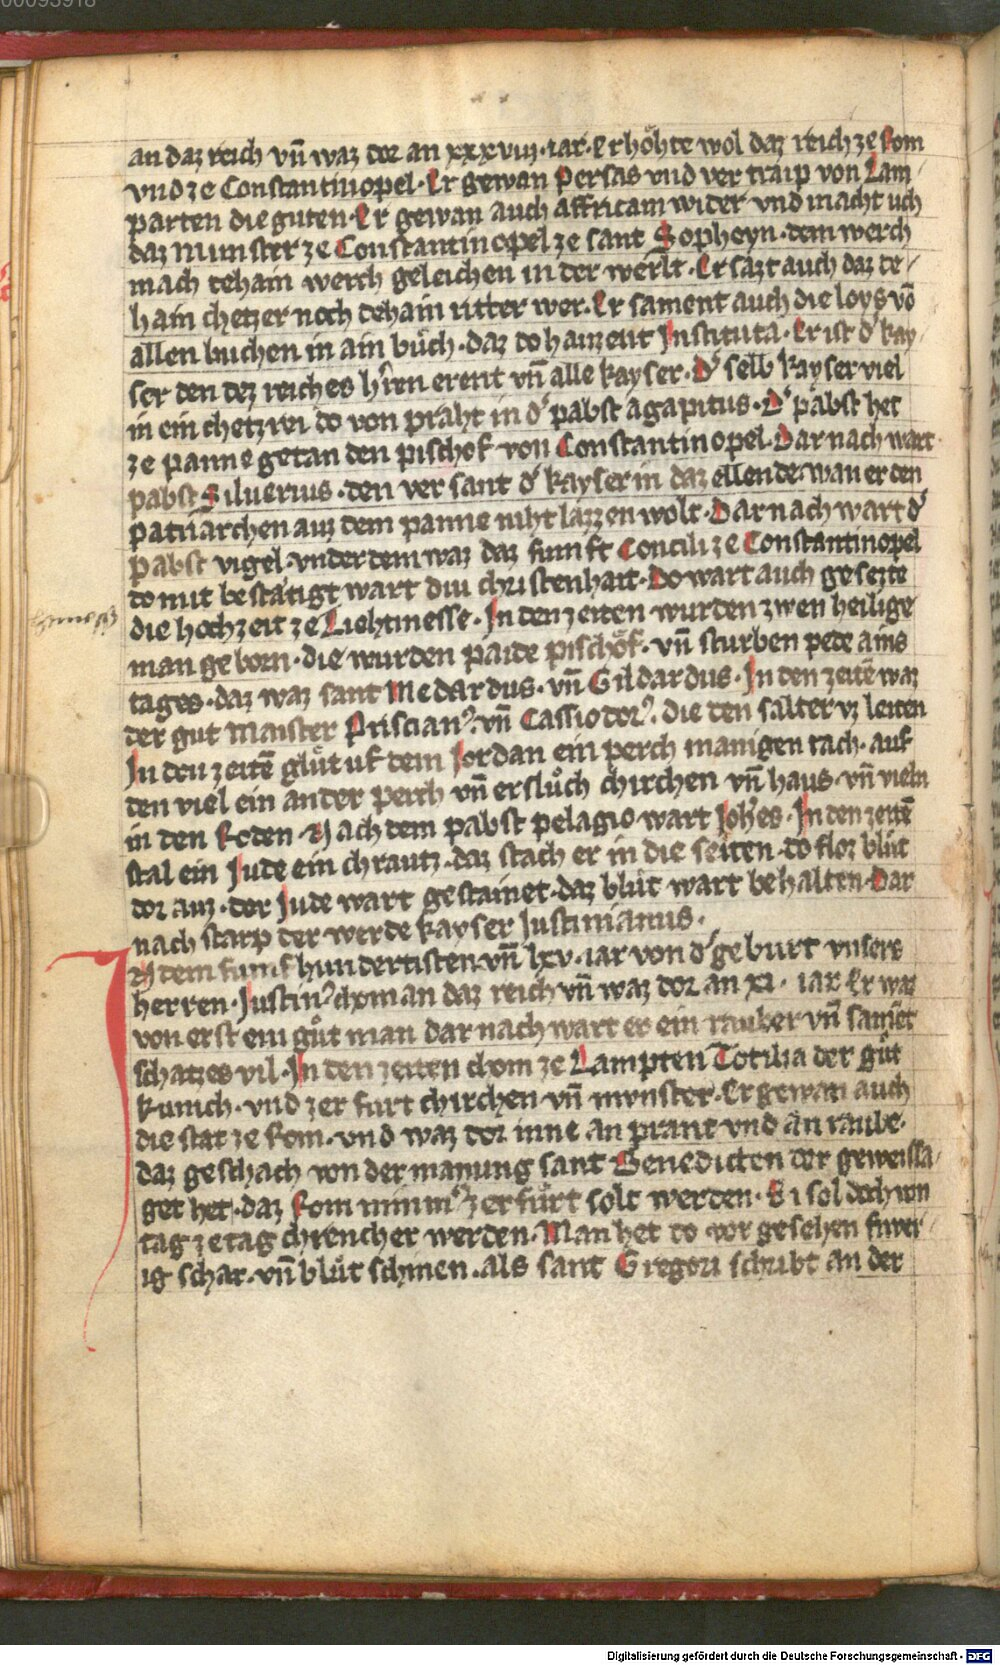 00093918
an daz reich vn̄ waz dor an xxxviij · iar · Er hoͤhte wol daz reich ze Rom
vnd ze Constantinopel · Er gewan Persas vnd ver traip von Lam/
parten die guten · Er gewan auch Affricam wider vnd macht uch
daz munster ze Constantinopel ze sant Sopheyn · dem werch
mach dehain werch geleichen in der werlt · Er sazt auch daz de/
hain chetzer noch dehain ritter wer · Er sament auch die loys vō
allen buchen in ain buͦch · daz do haizzent Instituta · Er ist d' kay/
ser den dez reiches h'ren erent vn̄ alle kayser · D' selb kayser viel
in ein chetzrei do von praht in d' pabst agapitus · D' pabst het
ze panne getan den pischof von Constantinopel · Dar nach wart
pabst Siluerius · den ver sant d' kayserin daz ellende · wan er den
patriarchen auz dem panne niht lazzen wolt · Dar nach wart d'
pabst vigel · vnder dem waz daz funft Concili ze Constantinopel
do mit bestaͤtigt wart diu christenhait · Do wart auch gesetzte
die hochzeit ze Liehtmesse · In den zeiten wurden zwen heilige
man geborn · die wurden paide pischoͤf · vn̄ sturben pede ains
tages · daz waz sant Medardus · vn̄ Gildardus · In den zeitē waz
der gut maister Priscian' · vn̄ Cassiodor' · die den salter vz leiten
In den zeitē gluͤt uf dem Jordan ein perch manigen tach · auf
den viel ein ander perch vn̄ ersluͦch chirchen vn̄ haus · vn̄ vieln
in den Roden · Nach dem pabst pelagio wart Joh'es · In den zeitē
stal ein Jude ein chrautz · daz stach er in die seiten · do floz bluͤt
dor auz · der Jude wart gestainet · daz bluͤt wart behalten · Dar
nach starp der werde kayser Justinianus ·
IN dem funf hundertisten vn̄ lxv · iar von d' geburt vnsers
herren · Justin' chom an daz reich vn̄ waz dor an xi · iar Er waz
von erst ein guͤt man dar nach wart er ein rauber vn̄ samēt
schatzes vil · In den zeiten chom ze Lampten Totilia der guͤt
kunich · vnd zer furt chirchen vn̄ mvnster · Er gewan auch
die stat ze Rom · vnd waz dor inne an prant vnd an raube ·
daz geschach von der manung sant Benedicten der geweissa/
get het · daz Rom nimm' zer fuͤrt solt werden · Si sol doch von
tag ze tag chrencher werden · Man het do vor gesehen fiwer/
ig schar · vn̄ bluͤt schinen · als sant Gregori schribt an der
Digitalisierung gefördert durch die Deutsche Forschungsgemeinschaft - DFG